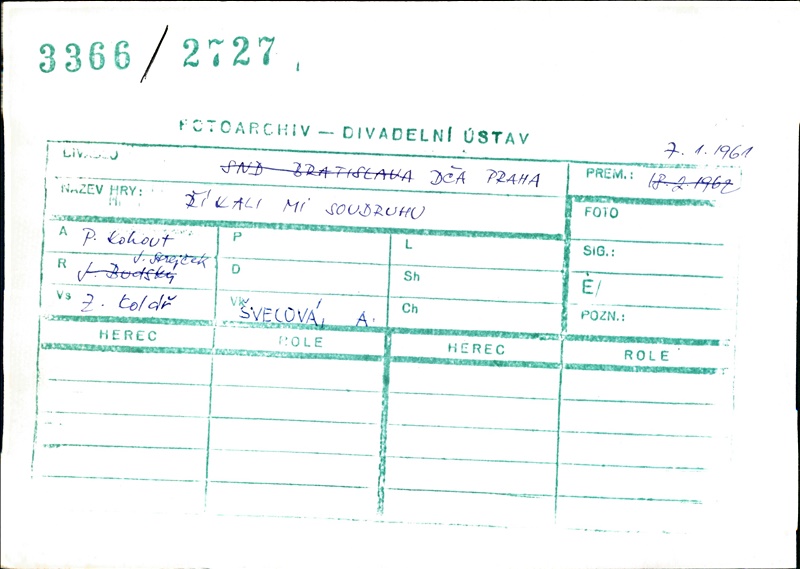 3366 / 2727
FOTOARCHIV — DIVADELNÍ ÚSTAV
7. 1. 1961
DIVADLO SND BRATISLAVA DČA PRAHA PREM.: 18. 2. 1962
NÁZEV HRY: ŘÍKALI MI SOUDRUHU FOTO
A P. Kohout P L SIG.:
J. Strejček
R J. Budský D Sh Ě/
Vs Z. Kolář Vk ŠVECOVÁ, A. Ch POZN.:
HEREC ROLE HEREC ROLE